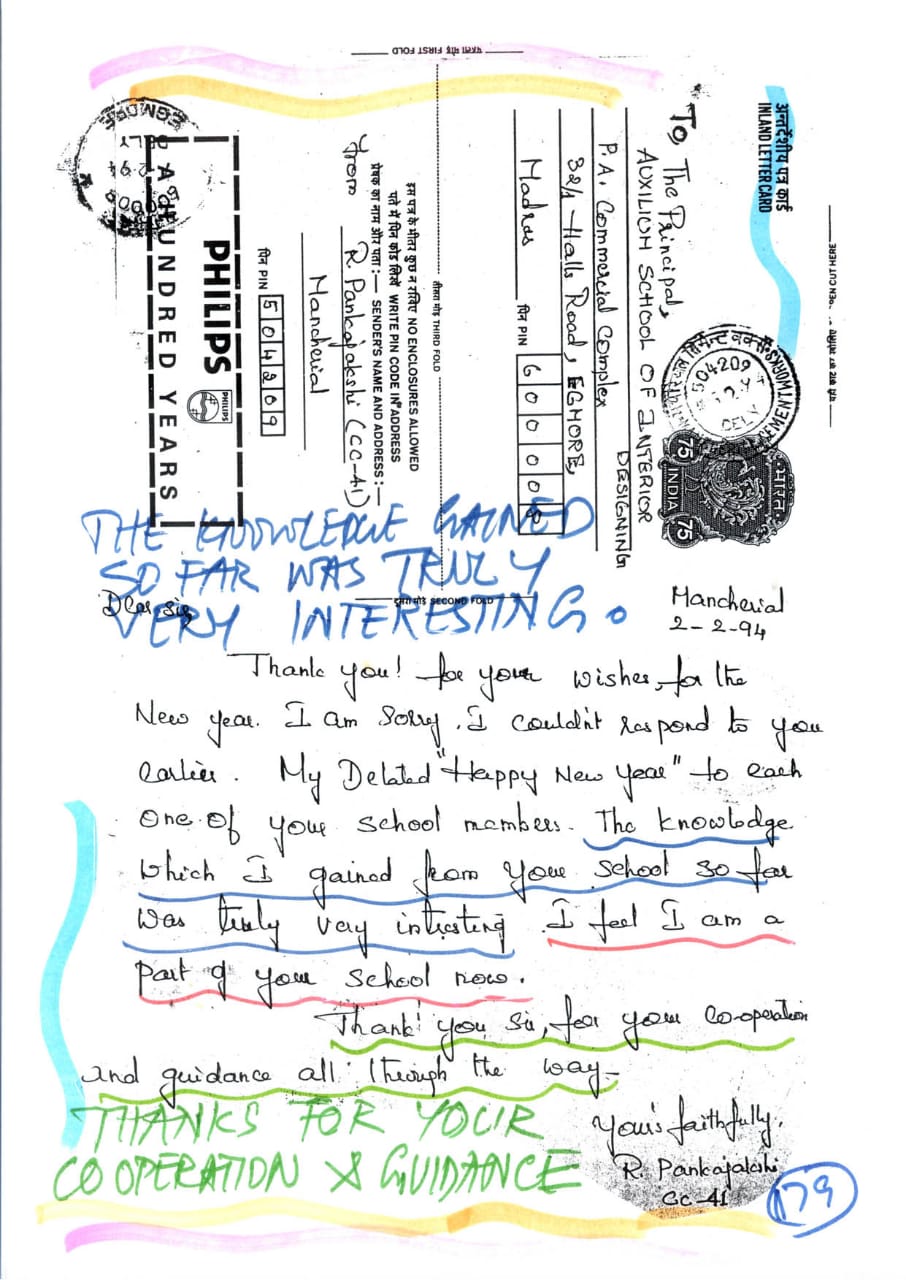 पहला मोड़ FIRST FOLD
अन्तर्देशीय पत्र कार्ड
INLAND LETTER CARD
To, The Principal,
AUXILIUM SCHOOL OF INTERIOR
DESIGNING
P.A. Commercial Complex
32/1-Halls Road, EGMORE,
Madras
पिन PIN 600008
भारत
75 INDIA 75
504209
DELY
CEMENT WORKS
तीसरा मोड़ THIRD FOLD
इस पत्र के भीतर कुछ न रखिए NO ENCLOSURES ALLOWED
पते में पिन कोड लिखें WRITE PIN CODE IN ADDRESS
प्रेषक का नाम और पता :— SENDER'S NAME AND ADDRESS :—
From
R. Pankajakshi (CC-41)
Mancherial
पिन PIN 504209
PHILIPS
PHILIPS
A HUNDRED YEARS
EGMORE
OPEN CUT HERE
THE KNOWLEDGE GAINED
SO FAR WAS TRULY
VERY INTERESTING.
SECOND FOLD
Mancherial
2-2-94
Dear Sir
Thank you! for your wishes, for the
New year. I am Sorry. I couldn't respond to you
earlier. My Delated "Happy New year" to each
one of your school members. The knowledge
which I gained from your school so far
was truly very intresting. I feel I am a
part of your school now.
Thank you Sir, for your Co-operation
and guidance all through the way-
THANKS FOR YOUR
COOPERATION & GUIDANCE
Your's faithfully,
R. Pankajakshi
CC-41
179